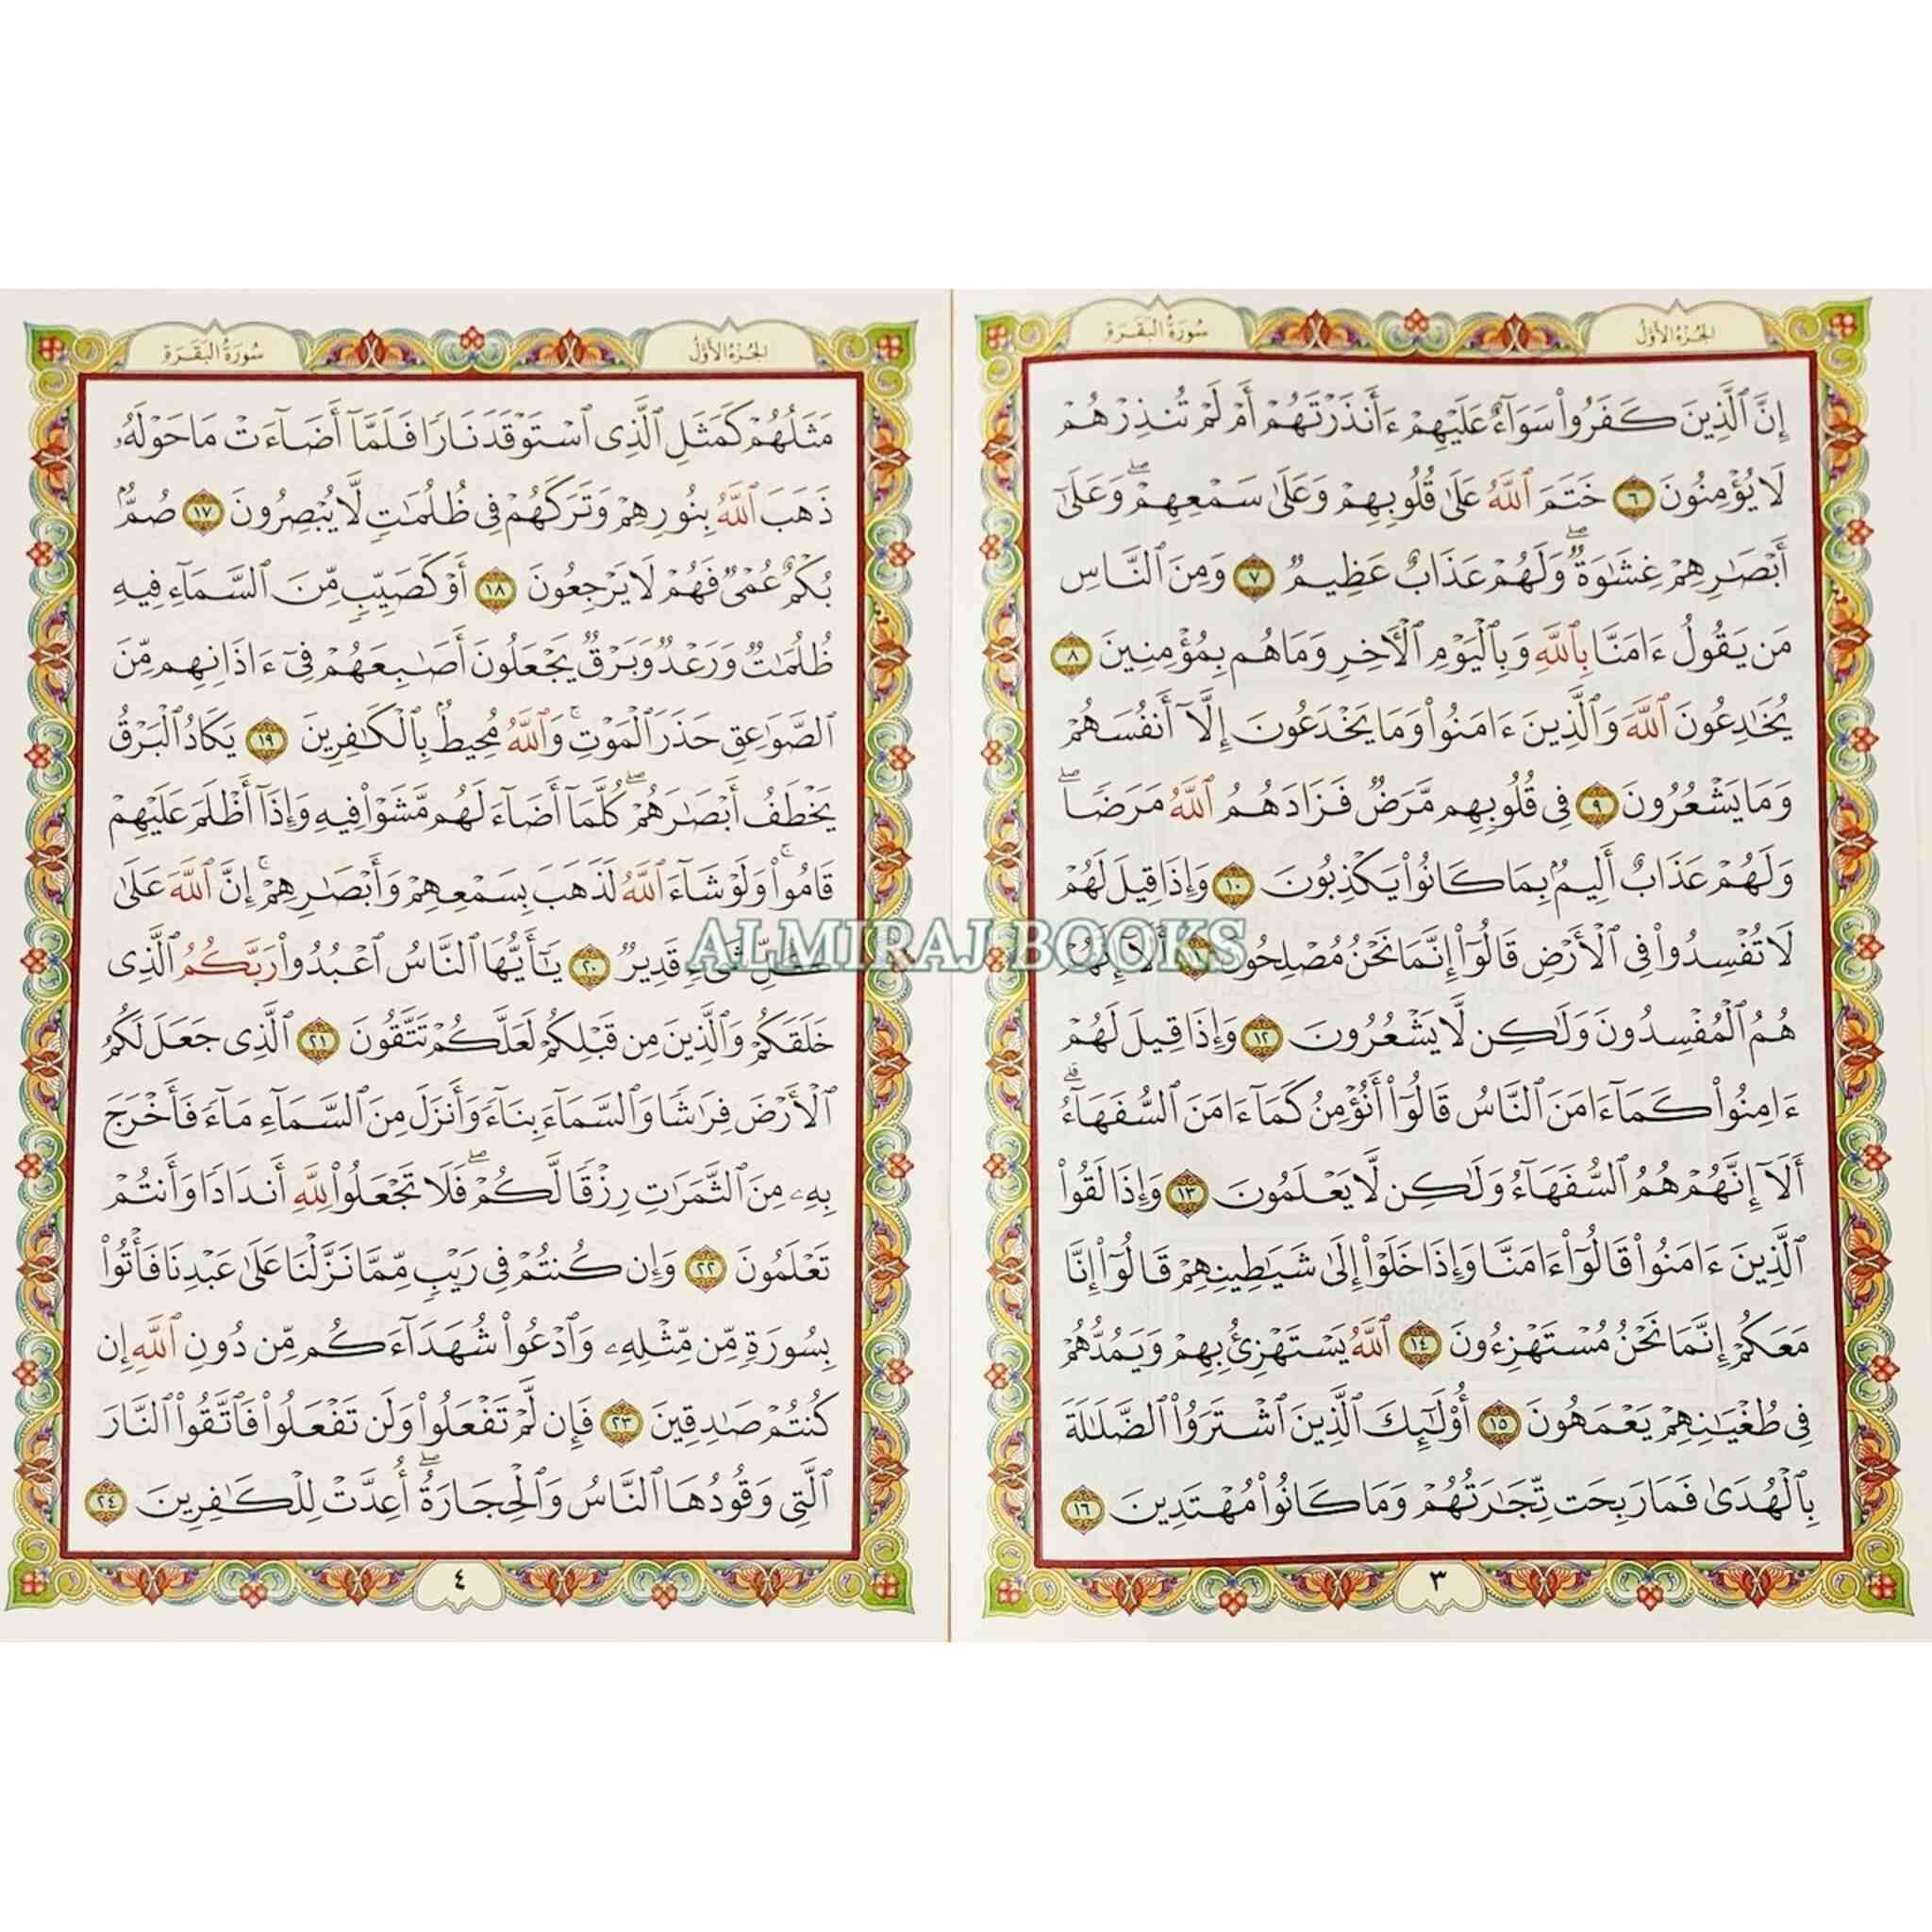 الجُزْءُ الأَوَّلُ
سُورَةُ البَقَرَةِ
إِنَّ ٱلَّذِينَ كَفَرُوا۟ سَوَآءٌ عَلَيْهِمْ ءَأَنذَرْتَهُمْ أَمْ لَمْ تُنذِرْهُمْ
لَا يُؤْمِنُونَ ٦ خَتَمَ ٱللَّهُ عَلَىٰ قُلُوبِهِمْ وَعَلَىٰ سَمْعِهِمْ ۖ وَعَلَىٰٓ
أَبْصَـٰرِهِمْ غِشَـٰوَةٌ ۖ وَلَهُمْ عَذَابٌ عَظِيمٌ ٧ وَمِنَ ٱلنَّاسِ
مَن يَقُولُ ءَامَنَّا بِٱللَّهِ وَبِٱلْيَوْمِ ٱلْـَٔاخِرِ وَمَا هُم بِمُؤْمِنِينَ ٨
يُخَـٰدِعُونَ ٱللَّهَ وَٱلَّذِينَ ءَامَنُوا۟ وَمَا يَخْدَعُونَ إِلَّآ أَنفُسَهُمْ
وَمَا يَشْعُرُونَ ٩ فِى قُلُوبِهِم مَّرَضٌ فَزَادَهُمُ ٱللَّهُ مَرَضًا ۖ
وَلَهُمْ عَذَابٌ أَلِيمٌۢ بِمَا كَانُوا۟ يَكْذِبُونَ ١٠ وَإِذَا قِيلَ لَهُمْ
لَا تُفْسِدُوا۟ فِى ٱلْأَرْضِ قَالُوٓا۟ إِنَّمَا نَحْنُ مُصْلِحُونَ ١١ أَلَآ إِنَّهُمْ
هُمُ ٱلْمُفْسِدُونَ وَلَـٰكِن لَّا يَشْعُرُونَ ١٢ وَإِذَا قِيلَ لَهُمْ
ءَامِنُوا۟ كَمَآ ءَامَنَ ٱلنَّاسُ قَالُوٓا۟ أَنُؤْمِنُ كَمَآ ءَامَنَ ٱلسُّفَهَآءُ ۗ
أَلَآ إِنَّهُمْ هُمُ ٱلسُّفَهَآءُ وَلَـٰكِن لَّا يَعْلَمُونَ ١٣ وَإِذَا لَقُوا۟
ٱلَّذِينَ ءَامَنُوا۟ قَالُوٓا۟ ءَامَنَّا وَإِذَا خَلَوْا۟ إِلَىٰ شَيَـٰطِينِهِمْ قَالُوٓا۟ إِنَّا
مَعَكُمْ إِنَّمَا نَحْنُ مُسْتَهْزِءُونَ ١٤ ٱللَّهُ يَسْتَهْزِئُ بِهِمْ وَيَمُدُّهُمْ
فِى طُغْيَـٰنِهِمْ يَعْمَهُونَ ١٥ أُو۟لَـٰٓئِكَ ٱلَّذِينَ ٱشْتَرَوُا۟ ٱلضَّلَـٰلَةَ
بِٱلْهُدَىٰ فَمَا رَبِحَت تِّجَـٰرَتُهُمْ وَمَا كَانُوا۟ مُهْتَدِينَ ١٦
٣
الجُزْءُ الأَوَّلُ
سُورَةُ البَقَرَةِ
مَثَلُهُمْ كَمَثَلِ ٱلَّذِى ٱسْتَوْقَدَ نَارًا فَلَمَّآ أَضَآءَتْ مَا حَوْلَهُۥ
ذَهَبَ ٱللَّهُ بِنُورِهِمْ وَتَرَكَهُمْ فِى ظُلُمَـٰتٍ لَّا يُبْصِرُونَ ١٧ صُمٌّۢ
بُكْمٌ عُمْىٌ فَهُمْ لَا يَرْجِعُونَ ١٨ أَوْ كَصَيِّبٍ مِّنَ ٱلسَّمَآءِ فِيهِ
ظُلُمَـٰتٌ وَرَعْدٌ وَبَرْقٌ يَجْعَلُونَ أَصَـٰبِعَهُمْ فِىٓ ءَاذَانِهِم مِّنَ
ٱلصَّوَٰعِقِ حَذَرَ ٱلْمَوْتِ ۚ وَٱللَّهُ مُحِيطٌۢ بِٱلْكَـٰفِرِينَ ١٩ يَكَادُ ٱلْبَرْقُ
يَخْطَفُ أَبْصَـٰرَهُمْ ۖ كُلَّمَآ أَضَآءَ لَهُم مَّشَوْا۟ فِيهِ وَإِذَآ أَظْلَمَ عَلَيْهِمْ
قَامُوا۟ ۚ وَلَوْ شَآءَ ٱللَّهُ لَذَهَبَ بِسَمْعِهِمْ وَأَبْصَـٰرِهِمْ ۚ إِنَّ ٱللَّهَ عَلَىٰ
كُلِّ شَىْءٍ قَدِيرٌ ٢٠ يَـٰٓأَيُّهَا ٱلنَّاسُ ٱعْبُدُوا۟ رَبَّكُمُ ٱلَّذِى
خَلَقَكُمْ وَٱلَّذِينَ مِن قَبْلِكُمْ لَعَلَّكُمْ تَتَّقُونَ ٢١ ٱلَّذِى جَعَلَ لَكُمُ
ٱلْأَرْضَ فِرَٰشًا وَٱلسَّمَآءَ بِنَآءً وَأَنزَلَ مِنَ ٱلسَّمَآءِ مَآءً فَأَخْرَجَ
بِهِۦ مِنَ ٱلثَّمَرَٰتِ رِزْقًا لَّكُمْ ۖ فَلَا تَجْعَلُوا۟ لِلَّهِ أَندَادًا وَأَنتُمْ
تَعْلَمُونَ ٢٢ وَإِن كُنتُمْ فِى رَيْبٍ مِّمَّا نَزَّلْنَا عَلَىٰ عَبْدِنَا فَأْتُوا۟
بِسُورَةٍ مِّن مِّثْلِهِۦ وَٱدْعُوا۟ شُهَدَآءَكُم مِّن دُونِ ٱللَّهِ إِن
كُنتُمْ صَـٰدِقِينَ ٢٣ فَإِن لَّمْ تَفْعَلُوا۟ وَلَن تَفْعَلُوا۟ فَٱتَّقُوا۟ ٱلنَّارَ
ٱلَّتِى وَقُودُهَا ٱلنَّاسُ وَٱلْحِجَارَةُ ۖ أُعِدَّتْ لِلْكَـٰفِرِينَ ٢٤
٤
ALMIRAJ BOOKS